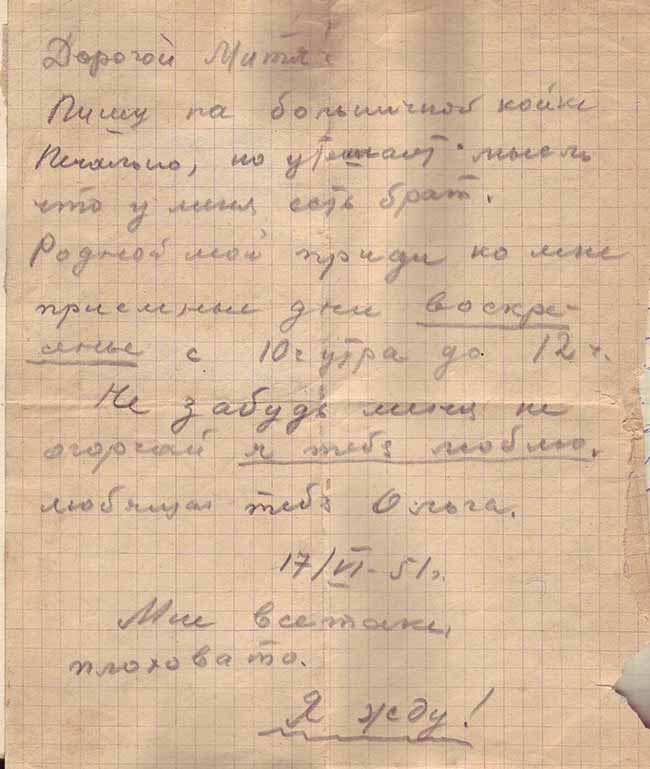 Дорогой Митя!
Пишу на больничной койке
Печально, но утешает мысль
что у меня есть брат.
Родной мой приди ко мне
приемные дни воскре-
сенье с 10 ч утра до 12 ч.
Не забудь меня не
огорчай я тебя люблю.
любящая тебя Ольга.
17/VI-51 г.
Мне всетаки,
плоховато.
Я жду!